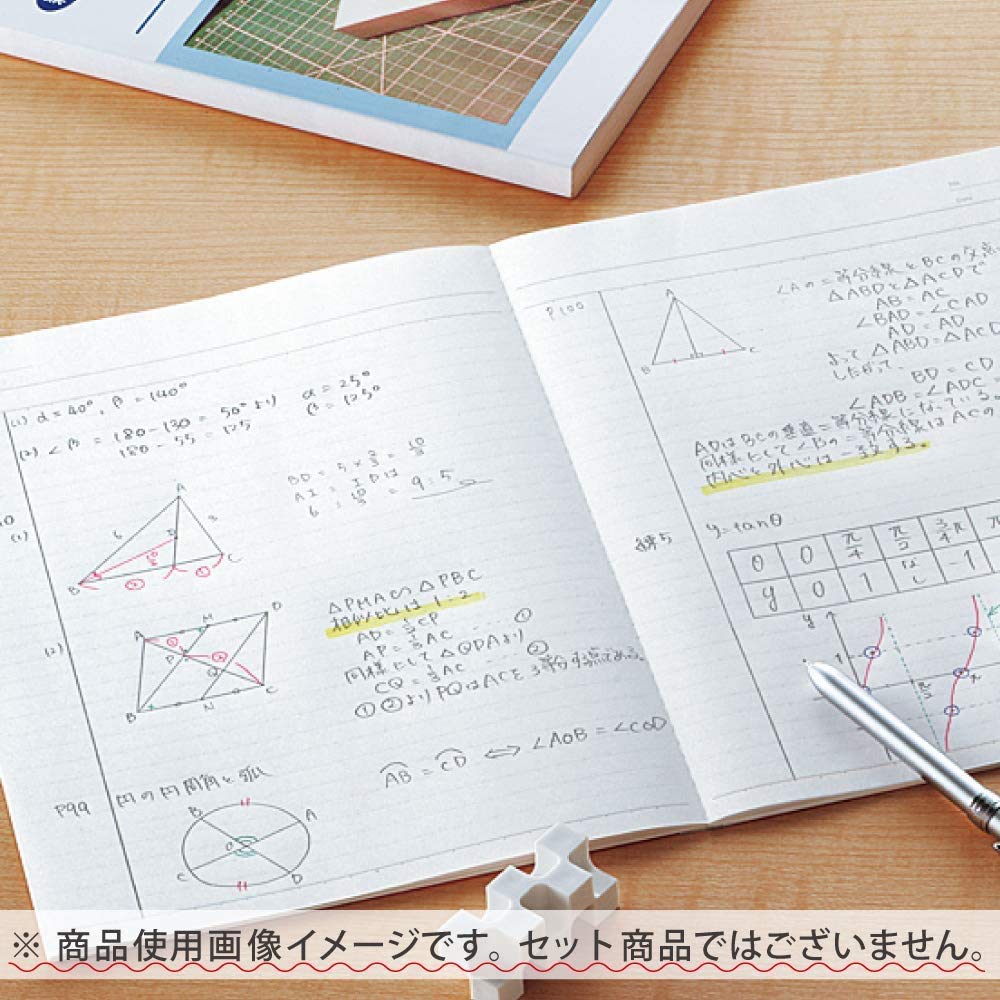 (1) α = 40°, β = 140°
(2) ∠β = 180 - 130 = 50° より
180 - 55 = 125
α = 25°
β = 125°
(1)
BD = 5 × 2/3 = 10/3
AI : ID は
6 : 10/3 = 9:5
A
6
3
B
C
(2)
A
M
D
P
Q
B
N
C
△PMA ∽ △PBC
相似比は 1:2
AP = 1/3 AC … ②
同様にして △QDAより
CQ = 1/3 AC … ②
①②よりPQはACを3等分する点である。
P99
円の円周角と弧
B
A
O
C
D
AB = CD ⇔ ∠AOB = ∠COD
P100
A
B
C
∠Aの二等分線とBCの交点
△ABDと△ACDで
AB = AC
∠BAD = ∠CAD
AD = AD
よって △ABD = △ACD
したがって、
BD = CD
∠ADB = ∠ADC =
ADはBCの垂直二等分線になっている。
同様にして∠Bの二等分線はACの
内心と外心は一致する。
練5
y = tanθ
θ 0 π/4 π/2 3/4π π
y 0 1 なし -1
y
1
π/2
π
※ 商品使用画像イメージです。セット商品ではございません。